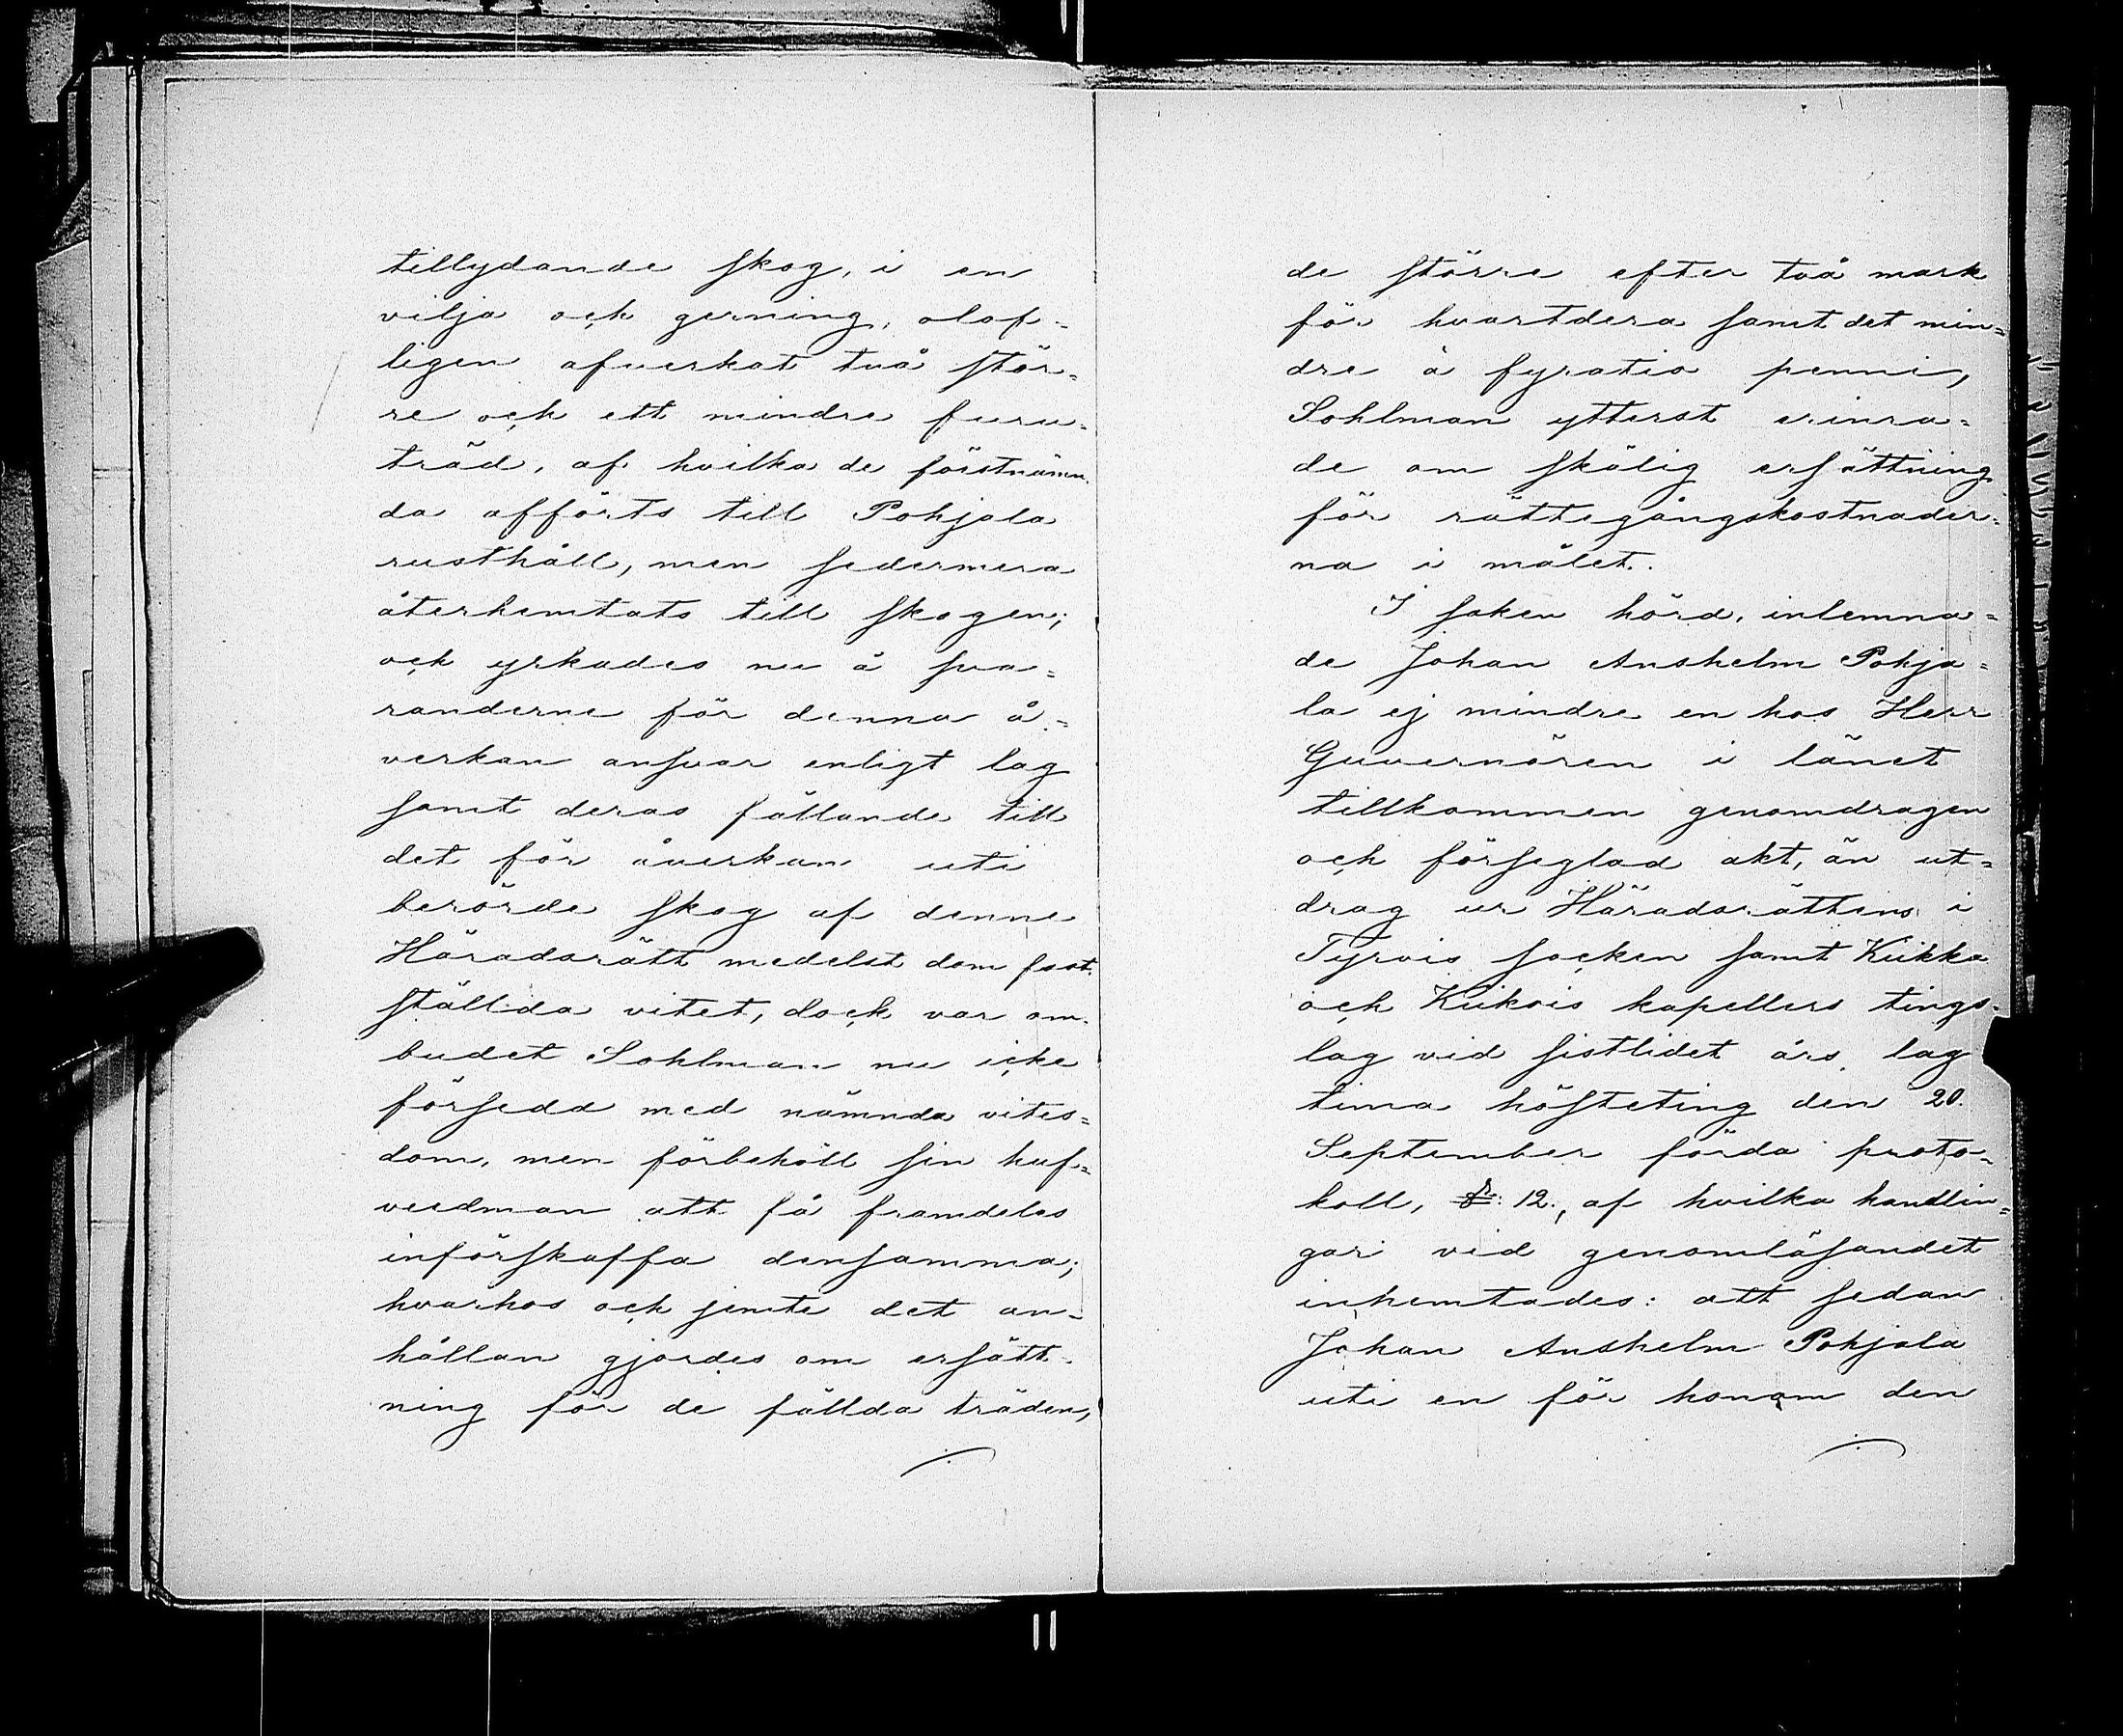 tillydande skog, i en
vilja och gerning, olof-
ligen afverkat två stör-
re och ett mindre furu-
träd, af hvilka de förstnämn-
da afförts till Pohjala
rusthåll, men sedermera
återhemtats till skogen;
och yrkades nu å sva-
randerne för denna å-
verkan ansvar enligt lag
samt deras fällande till
det för åverkan uti
berörde skog af denne
Häradsrätt medelst dom fast-
ställda vitet, dock var om-
budet Sohlman nu icke
försedd med nämnda vites-
dom, men förbehöll sin huf-
vudman att få framdeles
införskaffa densamma;
hvarhos och jemte det an-
hållan gjordes om ersätt-
ning för de fällda träden,
de större efter två mark
för hvartdera samt det min-
dre à fyratio penni,
Sohlman ytterst erinra-
de om skälig ersättning
för rättegångskostnader-
na i målet.
I saken hörd, inlemna-
de Johan Anshelm Pohja-
la ej mindre en hos Herr
Guvernören i länet
tillkommen genomdragen
och förseglad akt, än ut-
drag ur Häradsrättens i
Tyrvis socken samt Kiikka
och Kiikois kapellers tings-
lag vid sistlidet års lag
tima hösteting den 20.
September förda proto-
koll, § 12., af hvilka handlin-
gar vid genomläsandet
inhemtades: att sedan
Johan Anshelm Pohjala
uti en för honom den